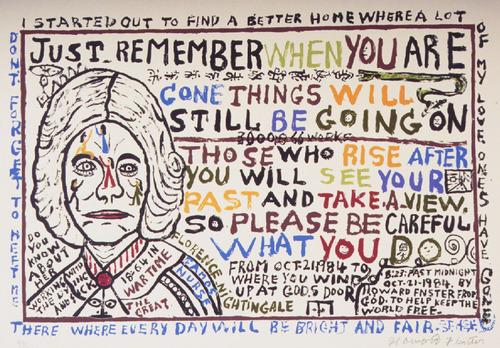 I STARTED OUT TO FIND A BETTER HOME WHERE A LOT
OF MY LOVE ONES HAVE GONE
DONT FORGET TO MEET ME
THERE WHERE EVERY DAY WILL BE BRIGHT AND FAIR.
JUST. REMEMBER WHEN YOU ARE
GONE THINGS WILL
STILL BE GOING ON
3000 866 WORKS
THOSE WHO RISE AFTER
YOU WILL SEE YOUR
PAST AND TAKE A VIEW.
SO PLEASE BE CAREFUL
WHAT YOU DO
FROM OCT-21-1984 TO
WHERE YOU WIND
UP AT GODS DOOR
8:23: PAST MIDNIGHT
OCT-21-1984. BY
HOWARD FINSTER FROM
GOD. TO HELP KEEP THE
WORLD FREE-
DO
YOU
KNOW
ABOUT
HER
WORKING AMID
THE
WARTIME
THE
GREAT.
FLORENCE NIGHTINGALE
NURSE
Howard Finster